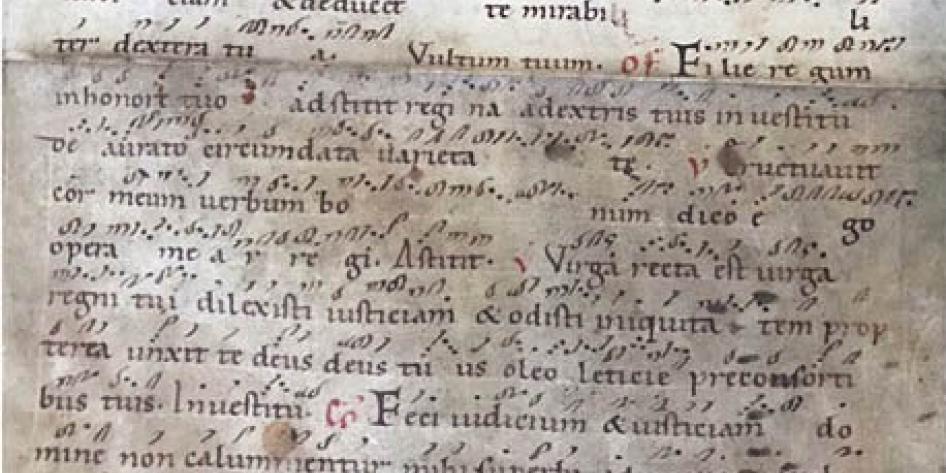 & deducet te mirabili
ter dextera tu a. Vultum tuum. of Filie re gum
inhonore tuo adstitit regi na adextris tuis in uestitu
de aurato circundata uarieta te. v Eructuauit
cor meum uerbum bo num dico e go
opera me a r re gi. Astitit. v Virga recta est uirga
regni tui dilexisti iusticiam & odisti iniquita tem prop
terea unxit te deus deus tu us oleo leticie preconsorti
bus tuis. Inuestitu. Co Feci iudicium & iusticiam do
mine non calumnientur mihi superbi